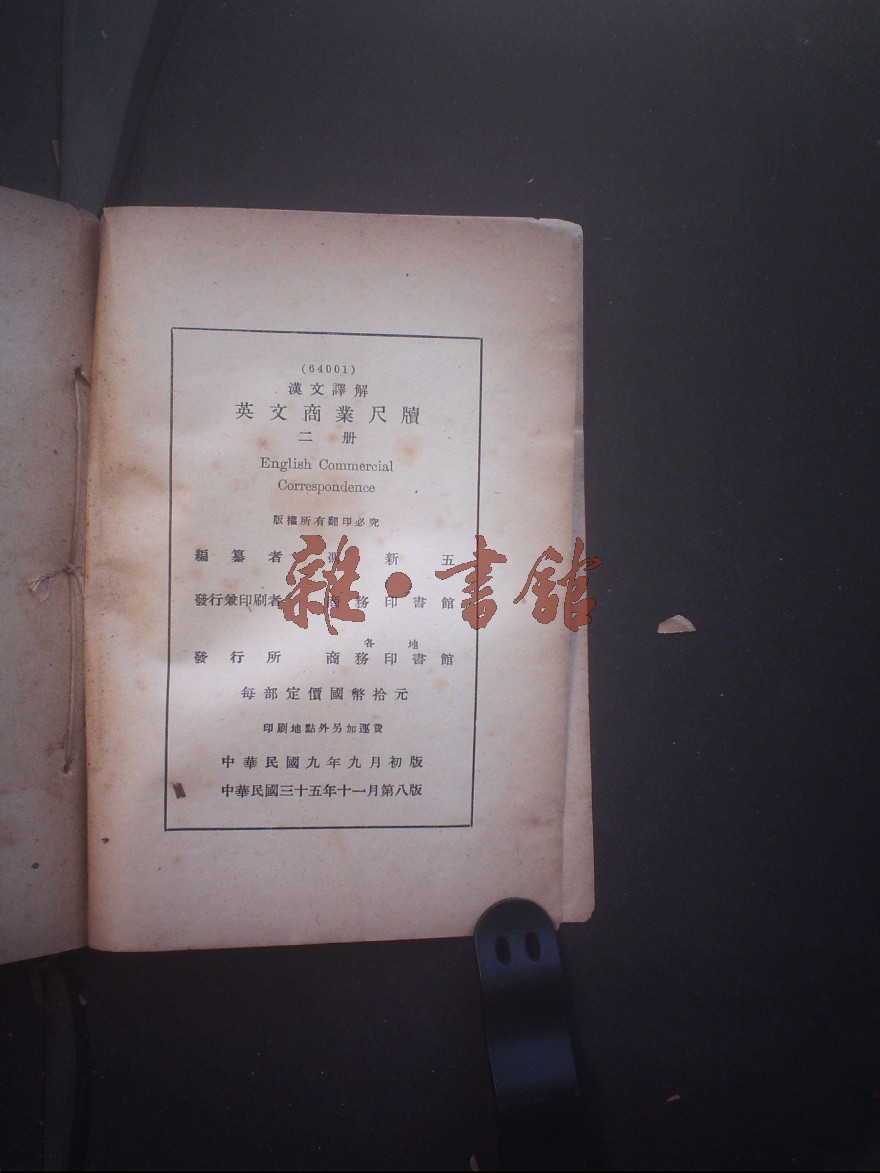 (64001)
漢文譯解
英文商業尺牘
二册
English Commercial
Correspondence
版權所有翻印必究
編纂者 新五
發行兼印刷者 商務印書館
各地
發行所 商務印書館
每部定價國幣拾元
印刷地點外另加運費
中華民國九年九月初版
中華民國三十五年十一月第八版
雜·書館